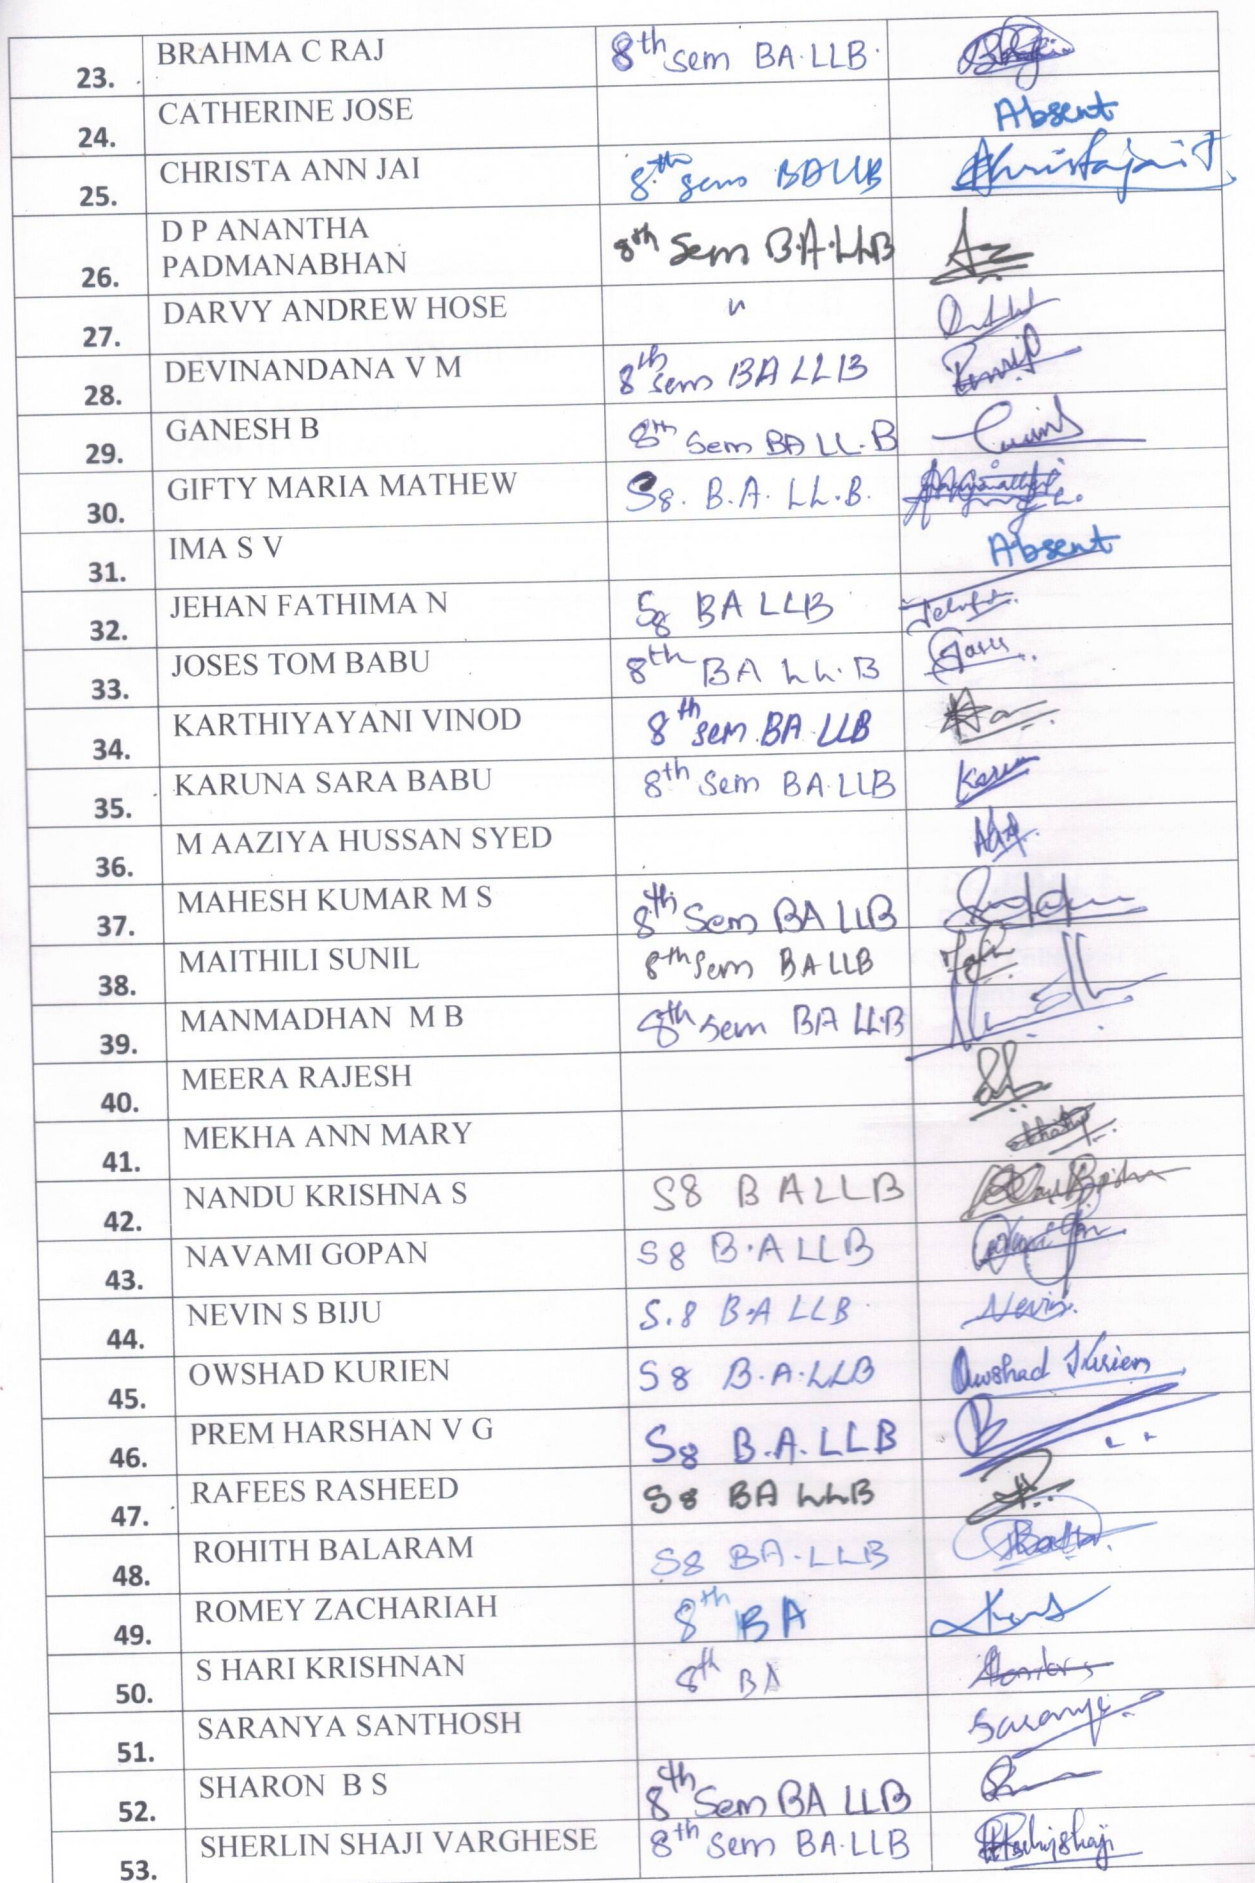 23. BRAHMA C RAJ 8th sem BA.LLB.
24. CATHERINE JOSE Absent
25. CHRISTA ANN JAI 8th sem BALLB Christajai J
26. D P ANANTHA
PADMANABHAN 8th Sem B.A.LLB
27. DARVY ANDREW HOSE "
28. DEVINANDANA V M 8th sem BA LLB
29. GANESH B 8th Sem BA LL.B
30. GIFTY MARIA MATHEW S8. B.A. LL.B.
31. IMA S V Absent
32. JEHAN FATHIMA N S8 BA LLB
33. JOSES TOM BABU 8th BA LL.B
34. KARTHIYAYANI VINOD 8th sem.BA LLB
35. KARUNA SARA BABU 8th Sem BA.LLB
36. M AAZIYA HUSSAN SYED
37. MAHESH KUMAR M S 8th Sem BA LLB
38. MAITHILI SUNIL 8th Sem BA LLB
39. MANMADHAN M B 8th sem BA LL.B
40. MEERA RAJESH
41. MEKHA ANN MARY
42. NANDU KRISHNA S S8 B A LLB
43. NAVAMI GOPAN S8 B.A LLB
44. NEVIN S BIJU S.8 B.A LLB Nevin.
45. OWSHAD KURIEN S8 B.A.LLB Owshad Kurien
46. PREM HARSHAN V G S8 B.A. LLB
47. RAFEES RASHEED S8 BA LLB
48. ROHITH BALARAM S8 BA.LLB
49. ROMEY ZACHARIAH 8th BA
50. S HARI KRISHNAN 8th BA
51. SARANYA SANTHOSH Saranya
52. SHARON B S 8th Sem BA LLB
53. SHERLIN SHAJI VARGHESE 8th Sem BA.LLB